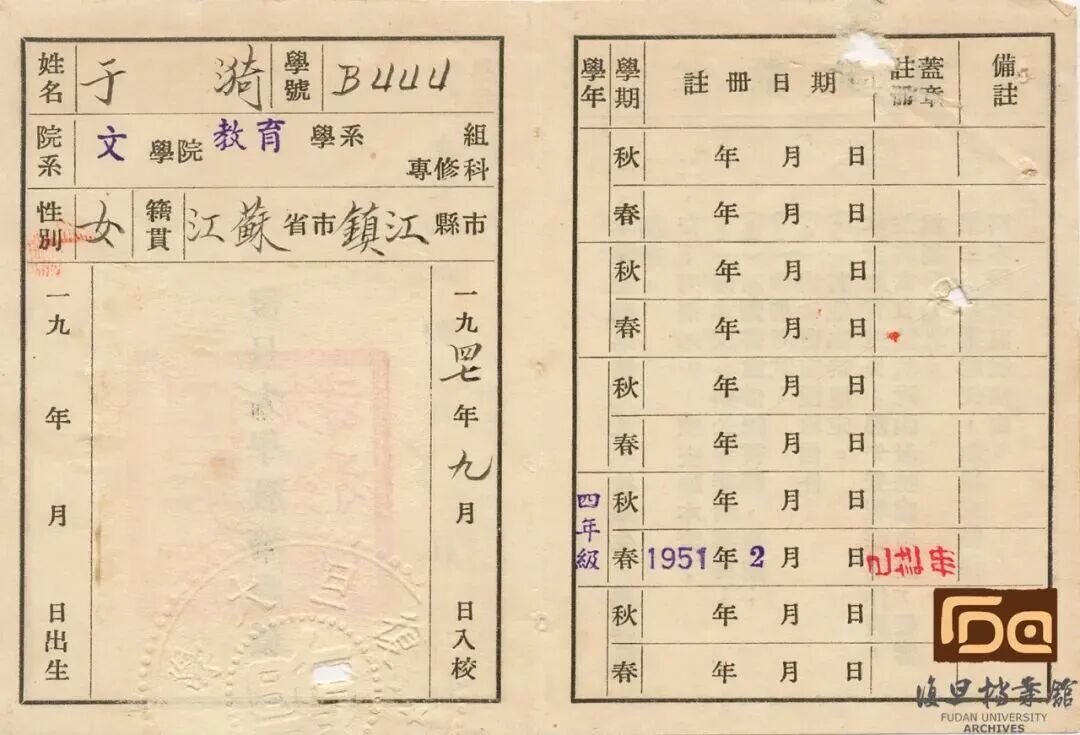 姓名 于漪 學號 B444
院系 文學院 教育學系 組
專修科
性別 女 籍貫 江蘇省市鎮江縣市
一九 年 月 日出生
一九四七年九月 日入校
學年 學期 註冊日期 註冊蓋章 備註
秋 年 月 日
春 年 月 日
秋 年 月 日
春 年 月 日
秋 年 月 日
春 年 月 日
四年級 秋 年 月 日
春 1951年2月 日 已註冊
秋 年 月 日
春 年 月 日
復旦檔案館
FUDAN UNIVERSITY
ARCHIVES